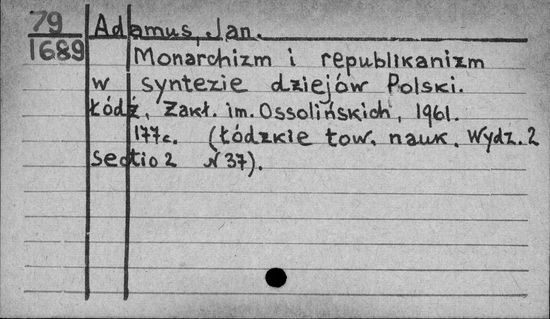 79
1689
Adamus, Jan.
Monarchizm i republikanizm
w syntezie dziejów Polski.
Łódź, Zakł. im. Ossolińskich, 1961.
177c. (Łódzkie tow. nauk. Wydz. 2
Sectio 2 N 37).